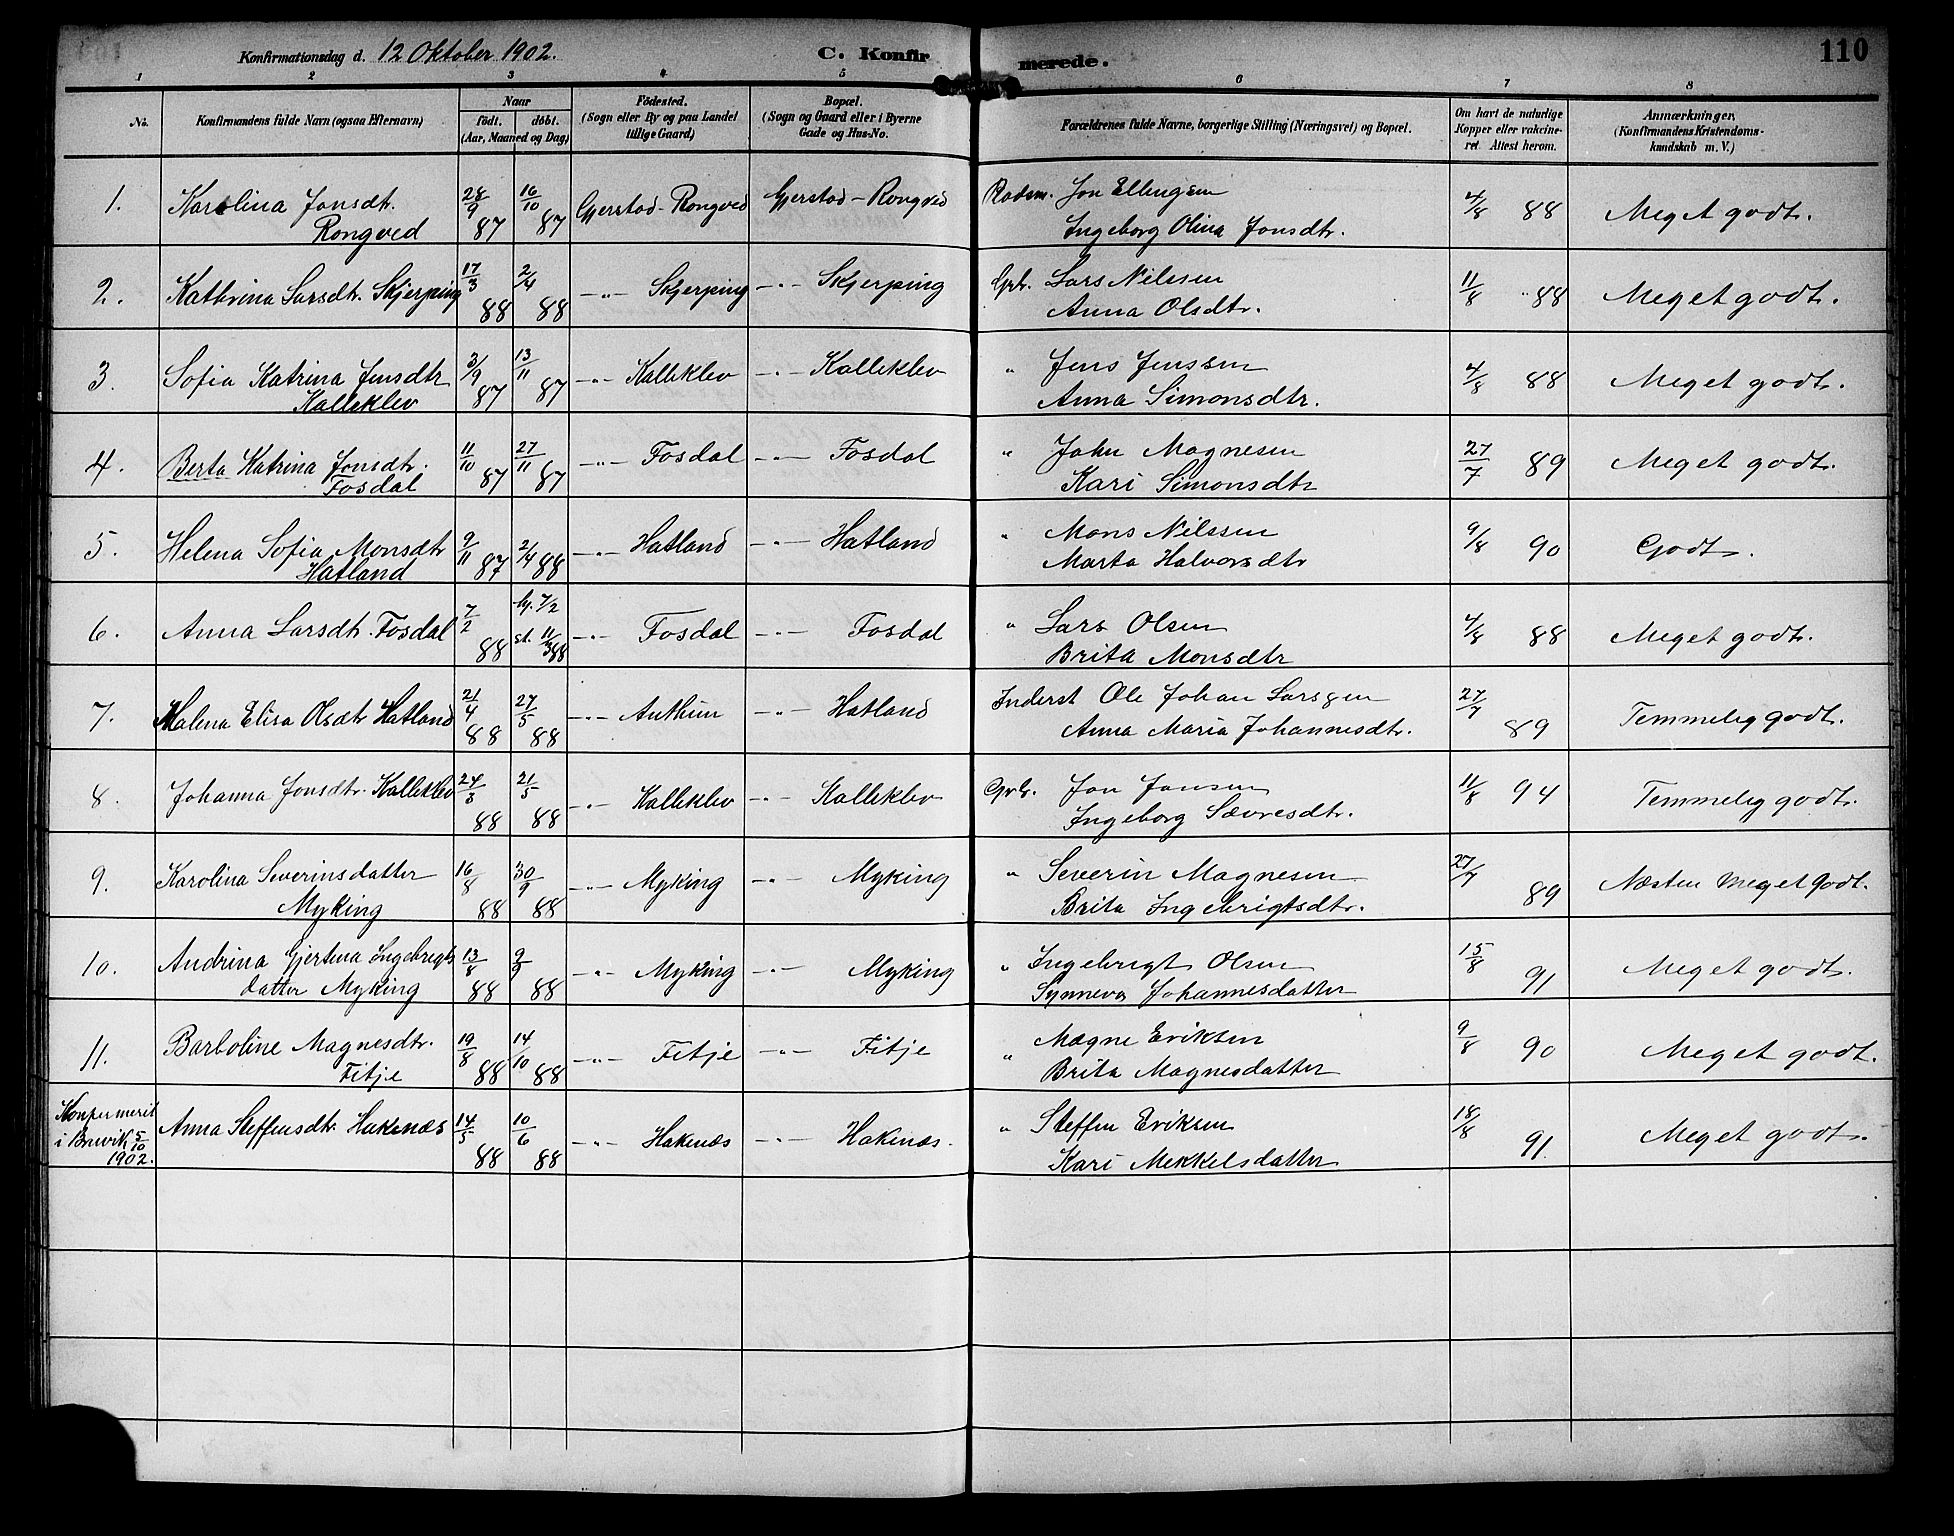 Konfirmationsdag d. 12 Oktober 1902. C. Konfirmerede. 110
1 2 3 4 5 6 7 8
No. Konfirmandens fulde Navn (ogsaa Efternavn) Naar født. døbt. (Aar, Maaned og Dag) Fødested. (Sogn eller By og paa Landet tillige Gaard) Bopæl. (Sogn og Gaard eller i Byerne Gade og Hus-No. Forældrenes fulde Navne, borgerlige Stilling (Næringsvei) og Bopæl. Om havt de naturlige Kopper eller vakcineret. Attest herom. Anmærkninger. (Konfirmandens Kristendomskundskab m. V.)
1. Karolina Jonsdt. 28/9 87 16/10 87 Gjerstad - Rongved Gjerstad - Rongved Jon Ellingsen 4/8 88 Meget godt.
Rongved Ingeborg Olina Jonsdtr.
2. Kathrina Larsdt. Skjerping 17/3 88 2/4 88 -"- Skjerping -"- Skjerping Gbr. Lars Nilssen 11/8 88 Meget godt.
Anna Olsdtr.
3. Sofia Katrina Jensdtr 3/9 87 13/11 87 -"- Kalleklev -"- Kalleklev " Jens Jenssen 4/8 88 Meget godt.
Kalleklev Anna Simonsdtr.
4. Berta Katrina Jonsdtr. 11/10 87 27/11 87 -"- Fosdal -"- Fosdal " John Magnesen 27/7 89 Meget godt.
Fosdal Kari Simonsdtr
5. Helena Sofia Monsdtr 9/11 87 2/4 88 -"- Hatland -"- Hatland " Mons Nilssen 9/8 90 Godt.
Hatland Marta Halvorsdtr
6. Anna Larsdtr. Fosdal 7/2 88 hj. 7/2 st. 11/3 88 -"- Fosdal -"- Fosdal " Lars Olsen 4/8 88 Meget godt.
Brita Monsdtr
7. Malena Elisa Olsdtr Hatland 21/4 88 27/5 88 -"- Anthun -"- Hatland Inderst Ole Johan Larsen 27/7 89 Temmelig godt.
Anna Maria Johannesdtr.
8. Johanna Jonsdtr. Kalleklev 24/3 88 21/5 88 -"- Kalleklev -"- Kalleklev Gbr. Jon Jonsen 11/8 94 Temmelig godt.
Ingeborg Sævresdtr.
9. Karolina Severinsdatter 16/8 88 30/9 88 -"- Myking -"- Myking " Severin Magnesen 27/7 89 Næsten meget godt.
Myking Brita Ingebrigtsdtr.
10. Andrina Gjertina Ingebrigts 13/8 88 9/9 88 -"- Myking -"- Myking " Ingebrigt Olsen 15/8 91 Meget godt.
datter Myking Synneva Johannesdatter
11. Barboline Magnesdtr. 19/8 88 14/10 88 -"- Fitje -"- Fitje " Magne Eriksen 9/8 90 Meget godt.
Fitje Brita Magnesdatter
Konfermeret i Bruvik 5/10 1902. Anna Steffensdtr. Hakenæs 14/5 88 10/6 88 -"- Hakenæs -"- Hakenæs. " Steffen Eriksen 18/8 91. Meget godt.
Kari Mekkelsdatter